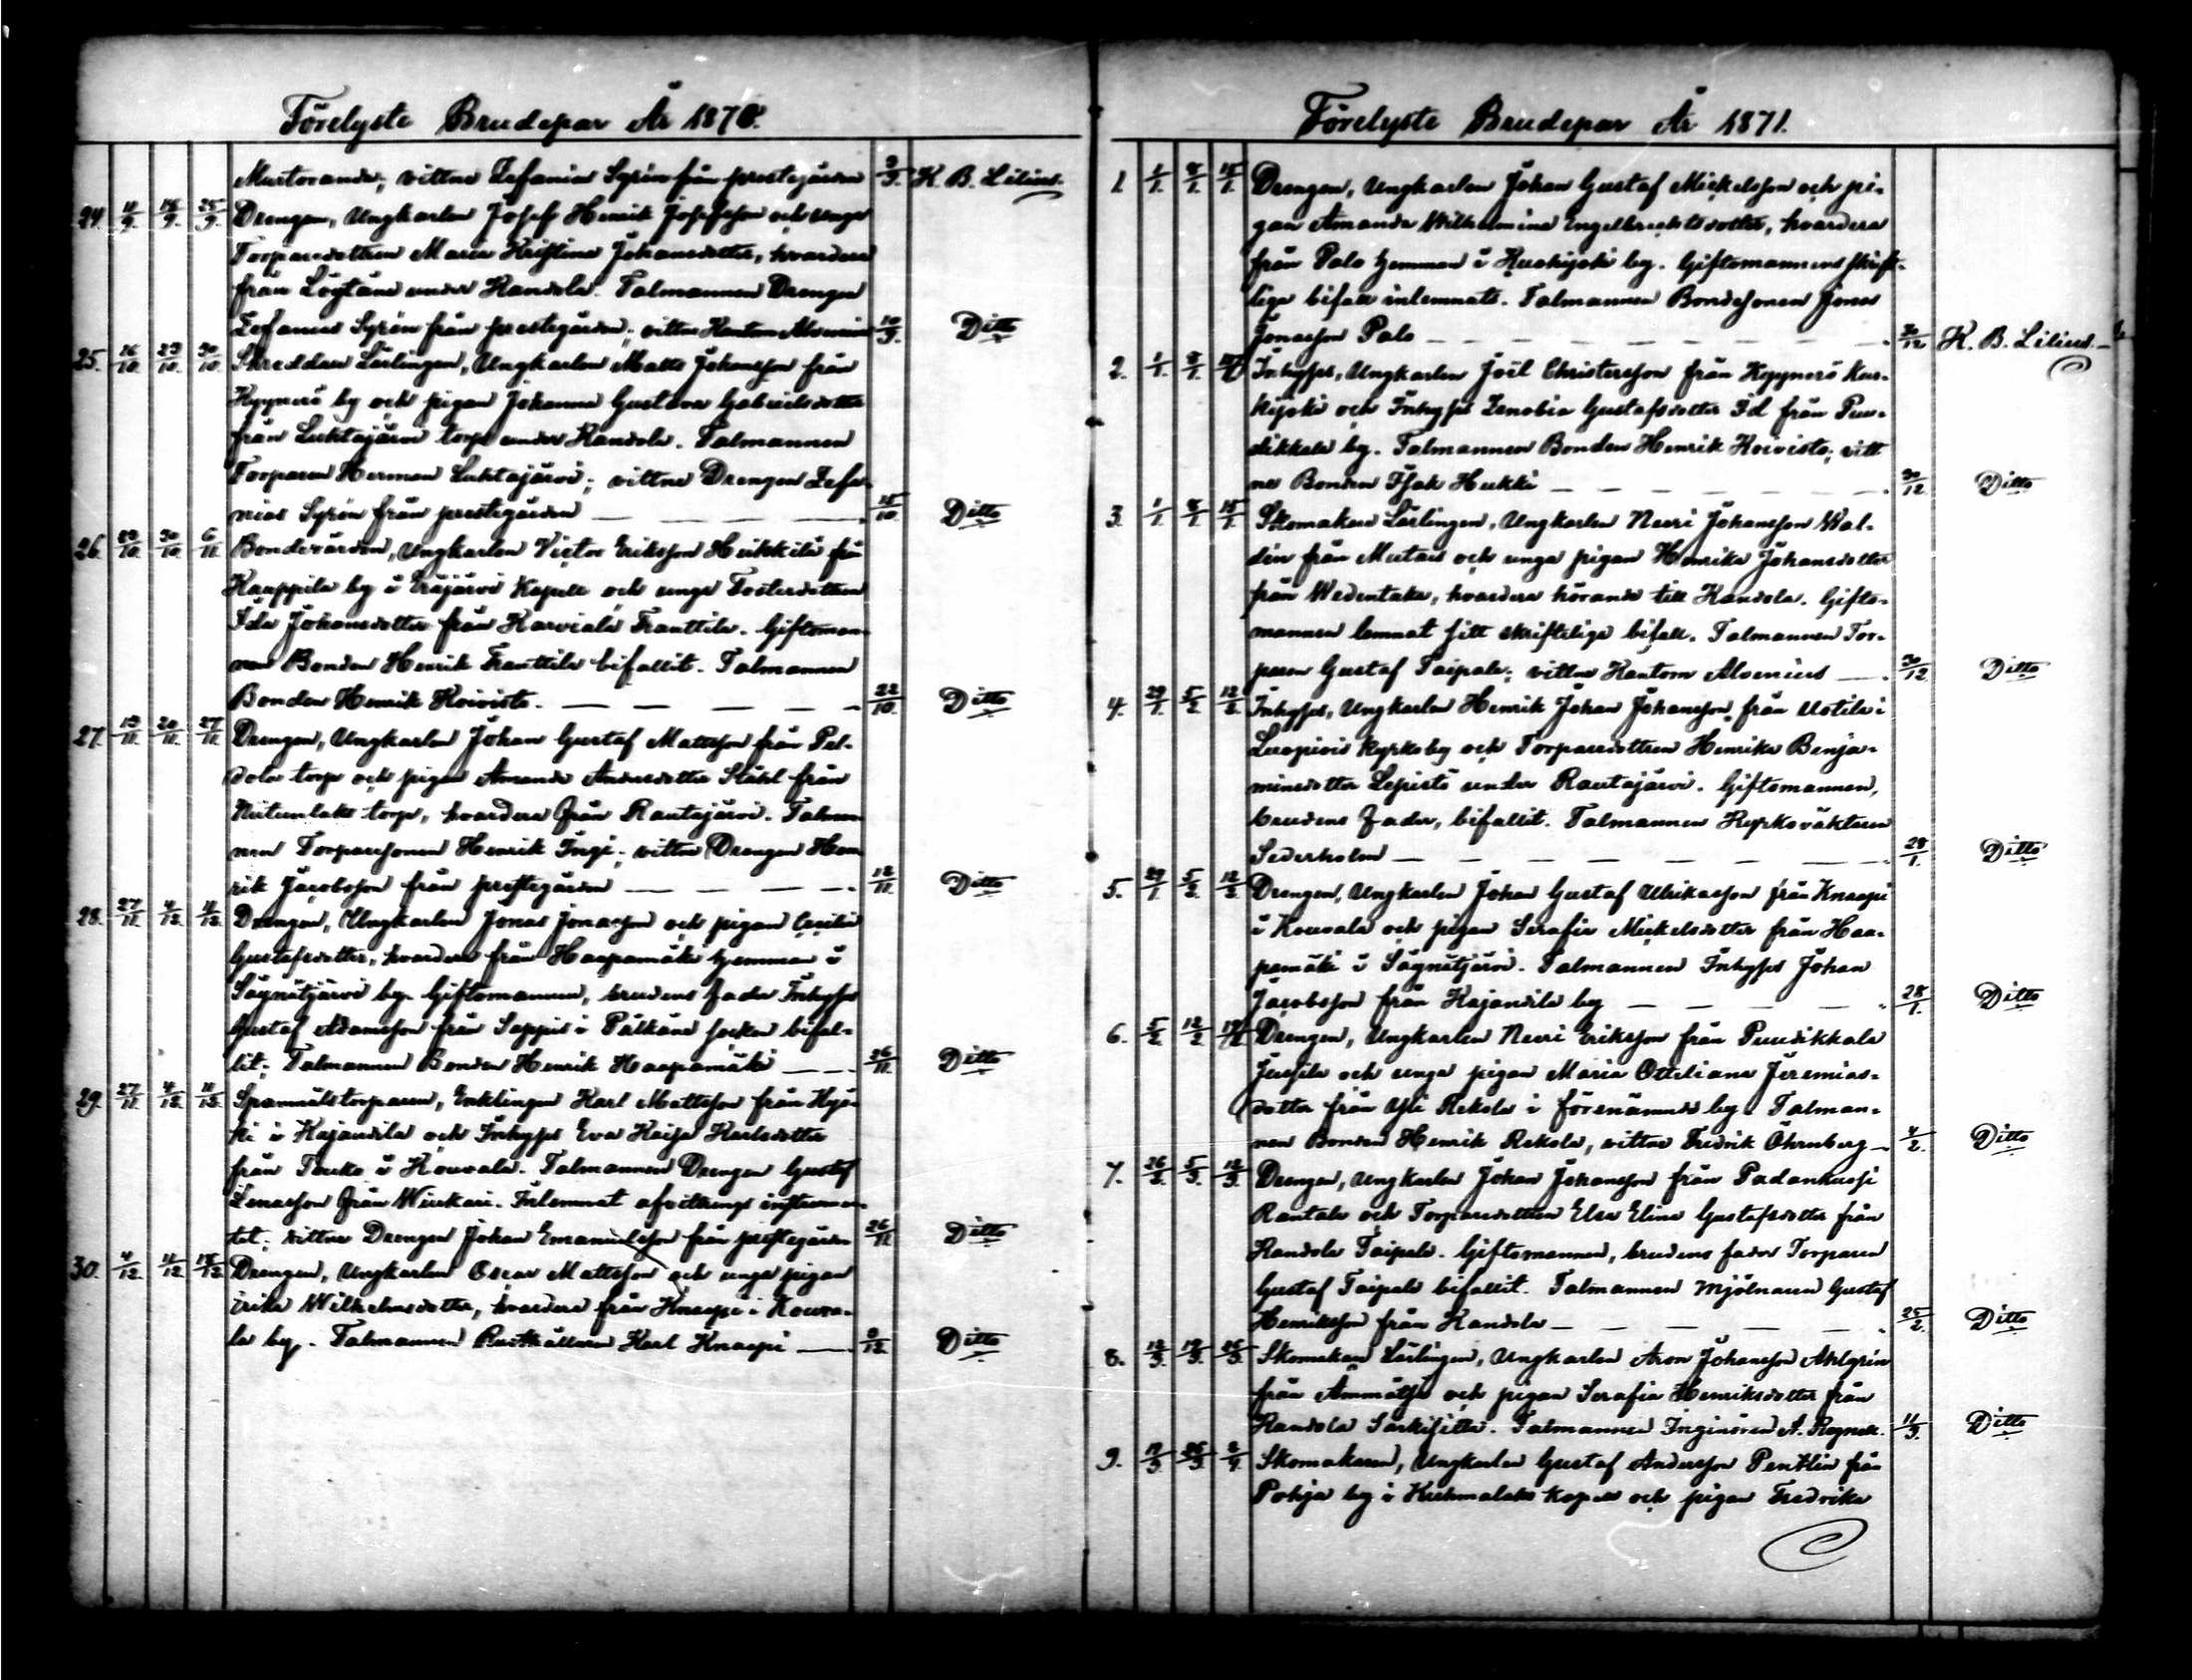 Förelyste Brudepar År 1870.
Mustoranda; vittne Zefanias Syrén från prestegården 3/9. K. B. Lilius.
24. 11/9. 18/9. 25/9. Drengen, Ungkarlen Josef Henrik Josefsson och unga
Torparedottren Maria Kristina Johansdotter, hvardera
från Löytänä under Kandola. Talmannen Drengen
Zefanias Syrén från prestegården; vittne Kantorn Alvenius 10/9. Ditto
25. 16/10. 23/10. 30/10. Skreddare Lärlingen, Ungkarlen Matts Johansson från
by och pigan Johanna Gustava Gabrielsdotter
från Luhtajärvi torp under Kandola. Talmannen
Torparen Herman Luhtajärvi; vittne Drengen Zefa-
nias Syrén från prestegården 15/10. Ditto
26. 23/10. 30/10. 6/11. Bondesonen, Ungkarlen Victor Eriksson Heikkilä frn
Kauppila by i Eräjärvi Kapell och unga Fosterdottren
Ida Johansdotter från Karviala Franttila. Giftoman-
nen Bonden Henrik Franttila bifallit. Talmannen
Bonden Henrik Koivisto. 22/10. Ditto
27. 13/11. 20/11. 27/11. Drengen, Ungkarlen Johan Gustaf Mattsson från Pel-
dola torp och pigan Amanda Andersdotter Ståhl från
torp, hvardera från Rautajärvi. Talman-
nen Torparesonen Henrik Ingi; vittne Drengen Hen-
rik Jacobsson från prestegården 12/11. Ditto
28. 27/11. 4/12. 11/12. Drengen, Ungkarlen Jonas Jonasson och pigan Cecilia
Gustafsdotter, hvardera från Haapamäki hemman i
Säynätjärvi by. Giftomannen, brudens fader Inhyses
Gustaf Adamsson från Sappi i Pälkäne socken bifal-
lit; Talmannen Bonden Henrik Haapamäki 26/11. Ditto
29. 27/11. 4/12. 11/12. Spannmålstorparen, Enklingen Karl Mattsson från
i Kajandila och Inhyses Eva Kaisa Karlsdotter
från i Kouvala. Talmannen Drengen Gustaf
Lenasson från . Inlemnat afvittrings instrumen-
tet; vittne Drengen Johan Emanuelsson från prestegården 26/11. Ditto
30. 4/12. 11/12. 18/12. Drengen, Ungkarlen Oscar Mattsson och unga pigan
Erika Wilhelmsdotter, hvardera från Knaapi i Kouva-
la by. Talmannen Rusthållaren Karl Knaapi 3/12. Ditto
Förelyste Brudepar År 1871.
1. 1/1. 8/1. 15/1. Drengen, Ungkarlen Johan Gustaf Mickelsson och pi-
gan Amanda Wilhelmina Engelbrechtsdotter, hvardera
från Palo hemman i Kuohijoki by. Giftomannens skrift-
liga bifall inlemnats. Talmannen Bondesonen Jonas
Jonasson Palo 30/12 K. B. Lilius.
2. 1/1. 8/1. 15/1. Inhyses, Ungkarlen Joël Christersson från
och Inhyses Zenobia Gustafsdotter Id från Puu-
dikkala by. Talmannen Bonden Henrik Koivisto; vitt
ne Bonden Isak Hukki 30/12 Ditto
3. 1/1. 8/1. 15/1. Skomakare Lärlingen, Ungkarlen Neeri Johansson Wal-
din från och unga pigan Henrika Johansdotter
från Wedentaka, hvardera hörande till Kandola. Gifto-
mannen lemnat sitt skriftliga bifall. Talmannen Tor-
paren Gustaf Taipale; vittne Kantorn Alvenius 30/12 Ditto
4. 29/1. 5/2. 12/2. Inhyses, Ungkarlen Henrik Johan Johansson från Uotila i
Luopiois Kyrkoby och Torparedottren Henrika Benja-
minsdotter Lepistö under Rautajärvi. Giftomannen,
brudens fader, bifallit. Talmannen Kyrkoväktaren
Sederholm 28/1. Ditto
5. 29/1. 5/2. 12/2. Drengen, Ungkarlen Johan Gustaf Ulrikasson från Knaapi
i Kouvala och pigan Serafia Mickelsdotter från Haa-
pamäki i Säynätjärvi. Talmannen Inhyses Johan
Jacobsson från Kajandila by 28/1. Ditto
6. 5/2. 12/2. 19/2. Drengen, Ungkarlen Neeri Eriksson från Puudikkala
Jussila och unga pigan Maria Ottiliana Jeremias-
dotter från Yli Rekola i förenämnde by. Talman-
nen Bonden Henrik Rekola, vittne Fredrik Öhrnberg 4/2. Ditto
7. 26/2. 5/3. 12/3. Drengen, Ungkarlen Johan Johansson från Padankussi
Rantala och Torparedottren Elsa Elina Gustafsdotter från
Kandola Taipale. Giftomannen, brudens fader Torparen
Gustaf Taipale bifallit. Talmannen Mjölnaren Gustaf
Henriksson från Kandola 25/2. Ditto
8. 12/3. 19/3. 26/3. Skomakare Lärlingen, Ungkarlen Aron Johansson Ahlgrén
från Ämmätsä och pigan Serafia Henriksdotter från
Kandola Särkisilta. Talmannen Inginören A. 11/3. Ditto
9. 19/3. 26/3. 2/4. Skomakaren, Ungkarlen Gustaf Andersson Penttin från
Pohja by i Kuhmalaks kapell och pigan Fredrika